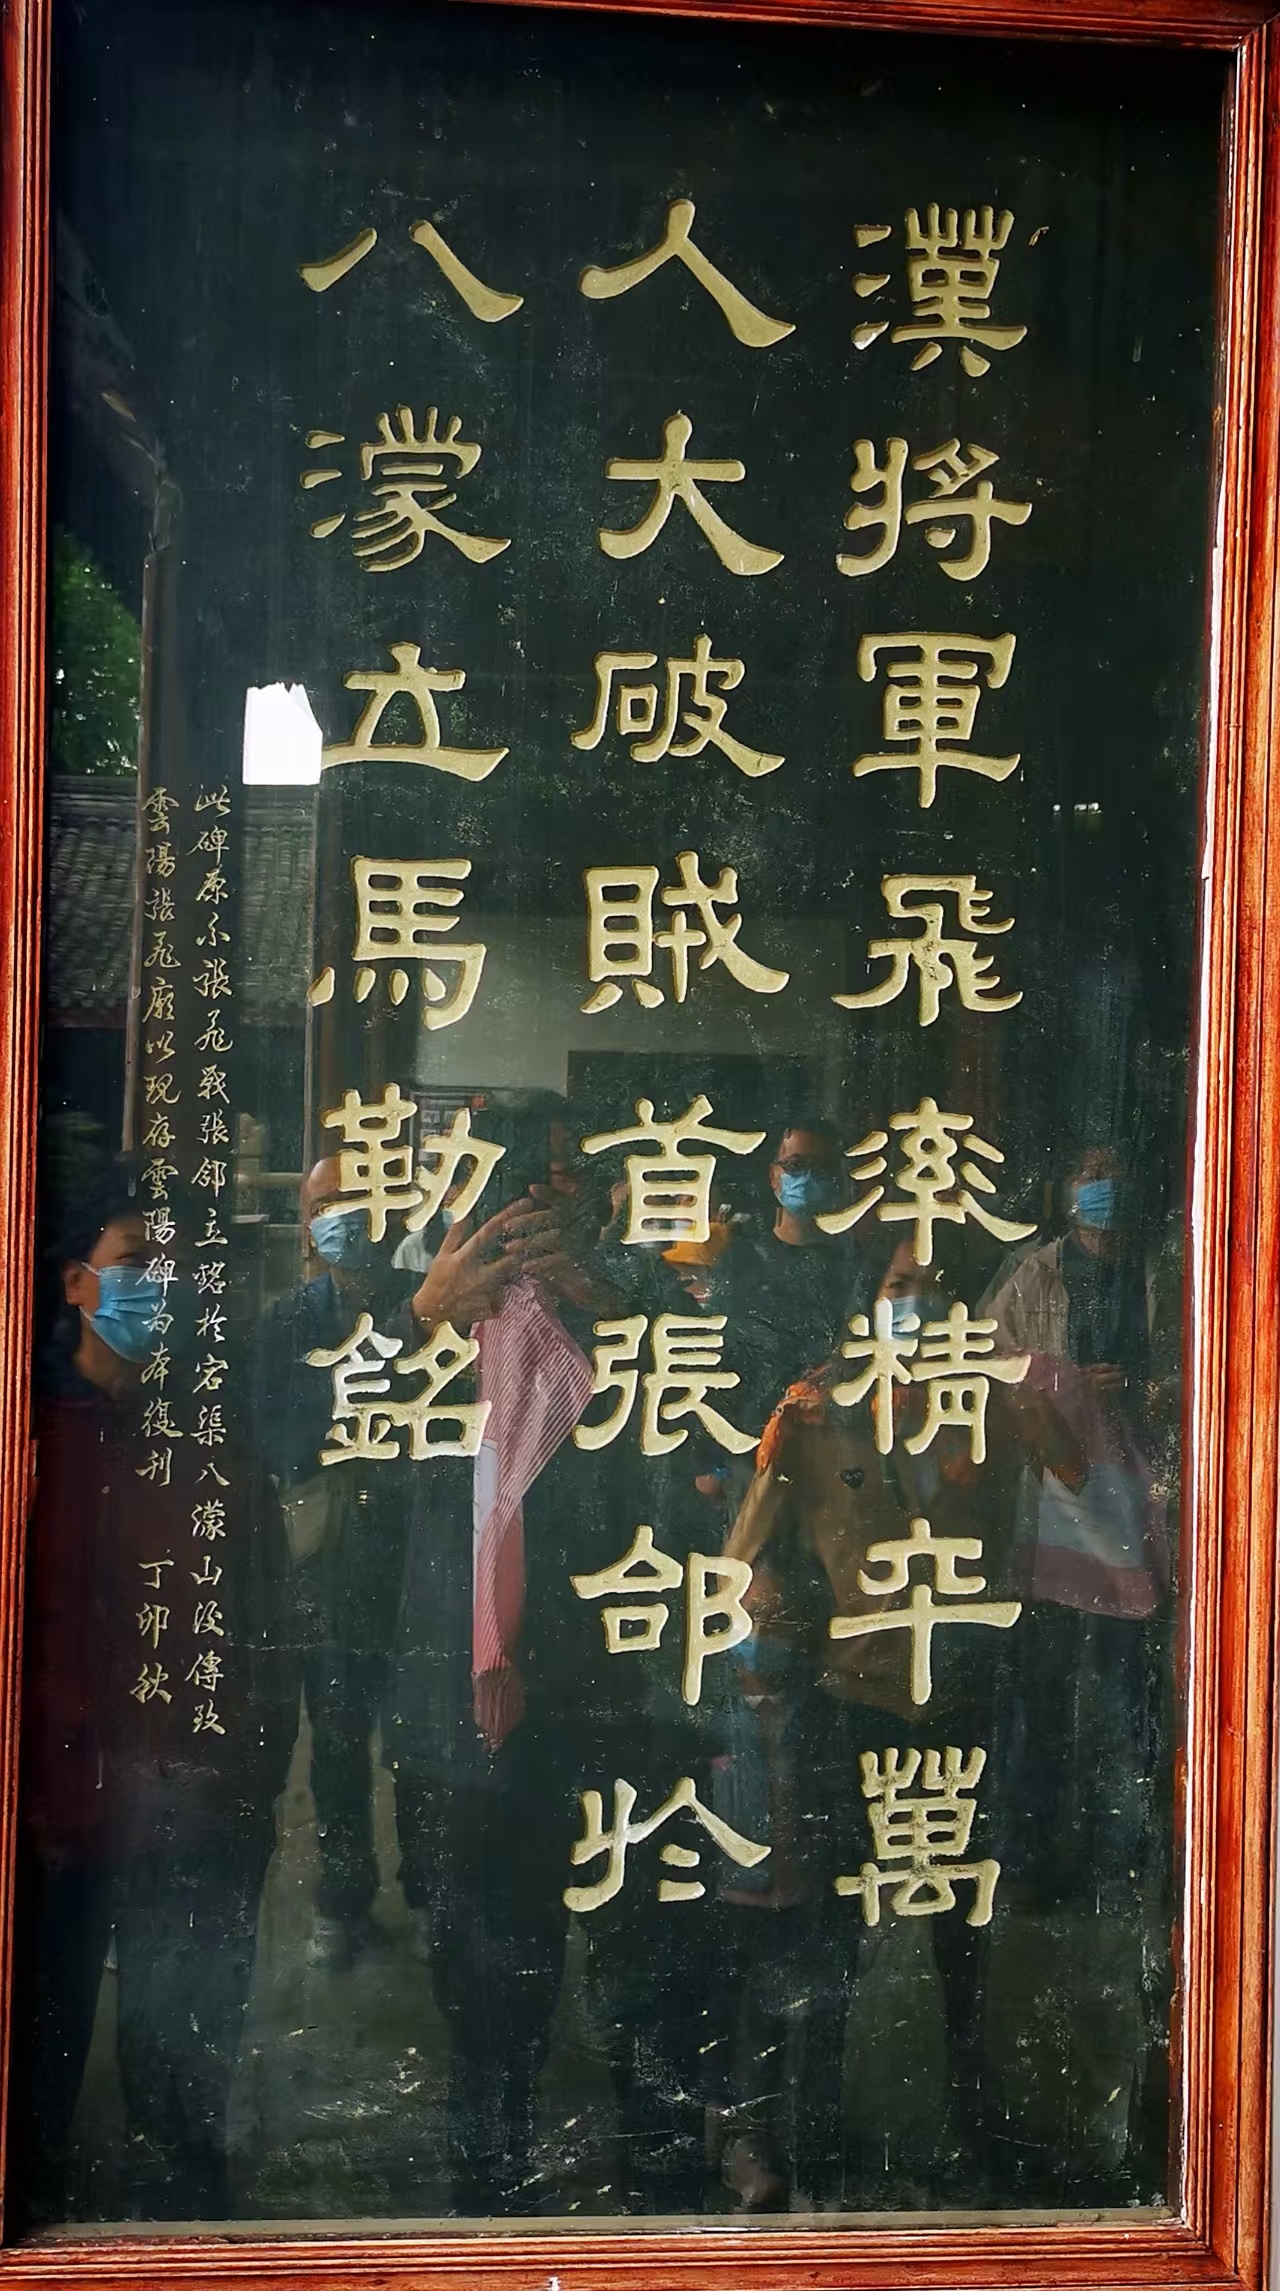 漢將軍飛率精卒萬
人大破賊首張郃於
八濛立馬勒銘
此碑原系張飛戰張郃立銘於宕渠八濛山後傳致
雲陽張飛廟以現存雲陽碑為本復刊 丁卯秋